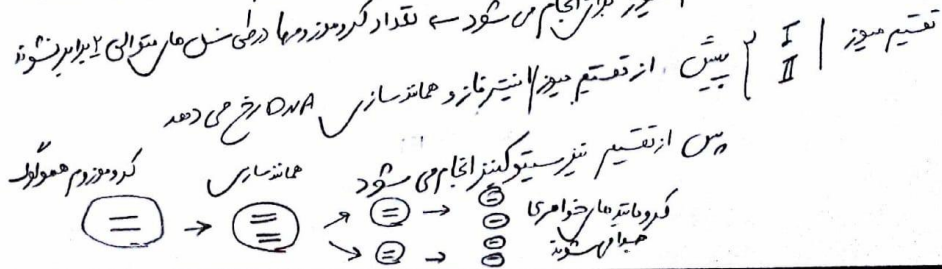 میوز برای انجام می شود ← تعداد کروموزوم‌ها در طی نسل های متوالی ۲ برابر نشوند
تقسیم میوز | I II } پیش از تقسیم میوز اینترفاز و همانندسازی DNA رخ می دهد
پس از تقسیم نیز سیتوکینز انجام می شود
کروموزوم همولوگ
همانندسازی
کروماتید های خواهری
جدا می شوند